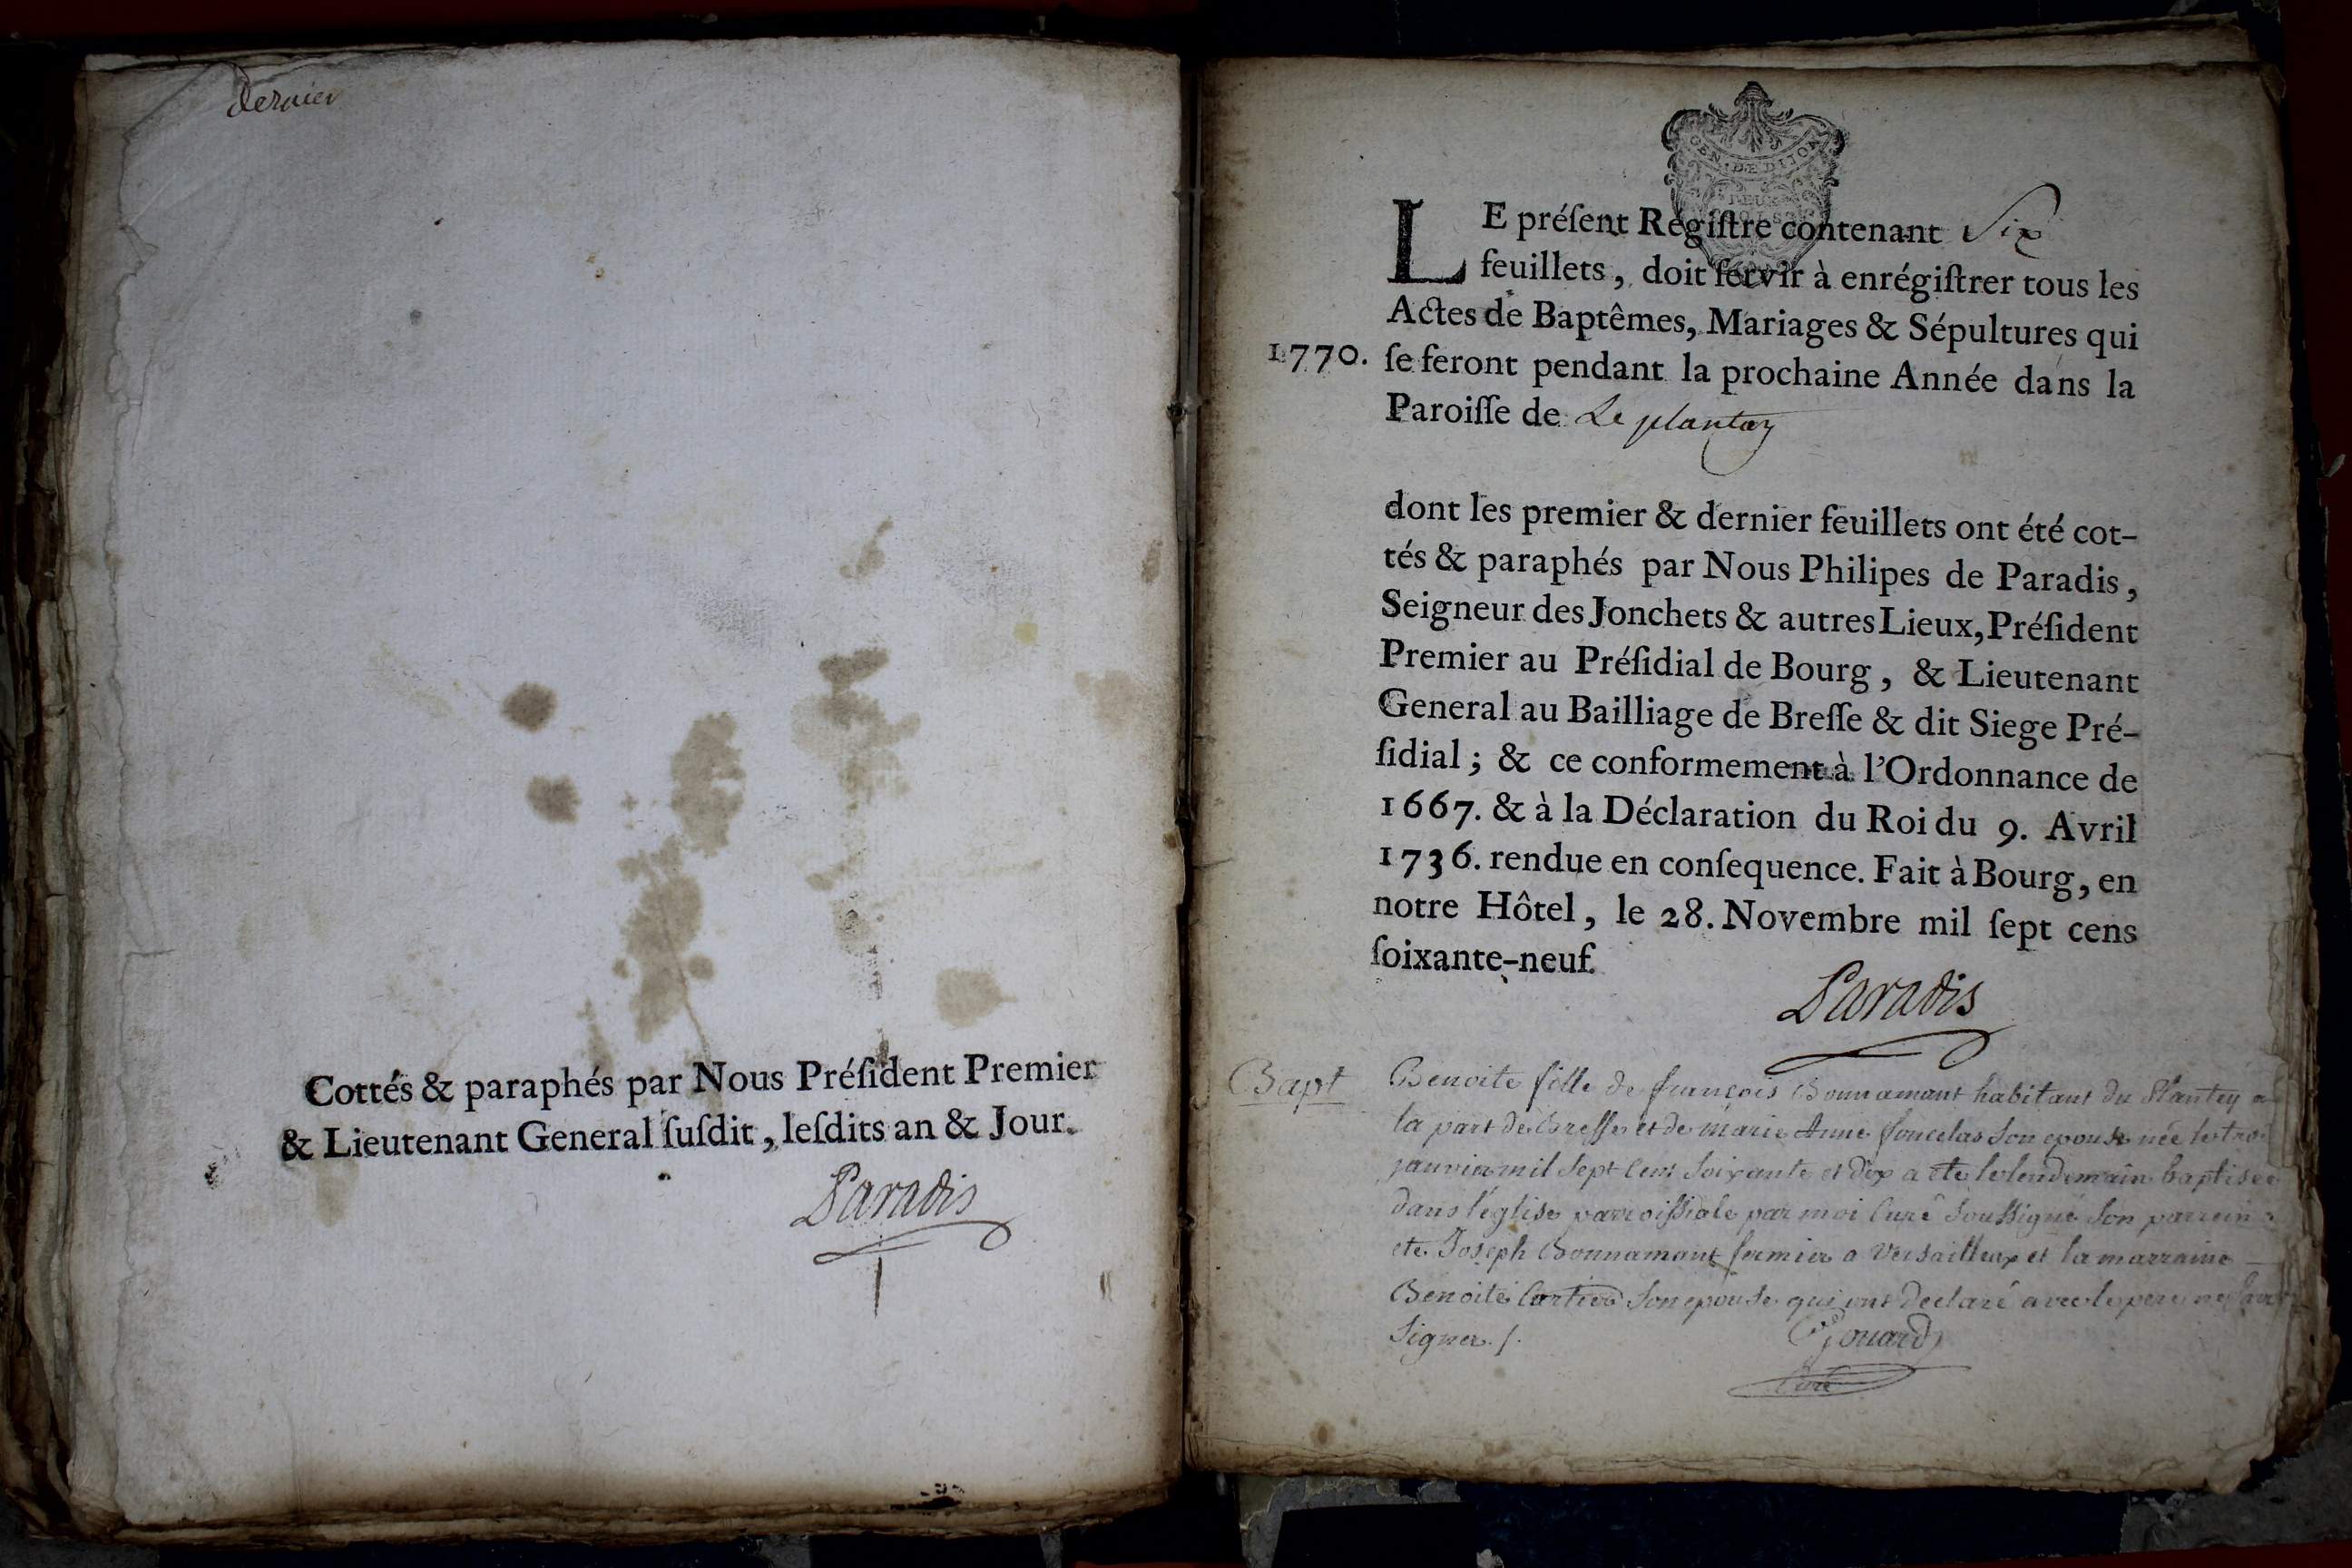 dernier
Cottés & paraphés par Nous Préſident Premier
& Lieutenant General ſuſdit, leſdits an & Jour.
Paradis
GEN. DE DIJON
DEUX
SOLS
LE préſent Régiſtre contenant Six
feuillets, doit ſervir à enrégiſtrer tous les
Actes de Baptêmes, Mariages & Sépultures qui
1770. ſe feront pendant la prochaine Année dans la
Paroiſſe de Le plantay
dont les premier & dernier feuillets ont été cot-
tés & paraphés par Nous Philipes de Paradis,
Seigneur des Jonchets & autres Lieux, Préſident
Premier au Préſidial de Bourg, & Lieutenant
General au Bailliage de Breſſe & dit Siege Pré-
ſidial; & ce conformement à l'Ordonnance de
1667. & à la Déclaration du Roi du 9. Avril
1736. rendue en conſequence. Fait à Bourg, en
notre Hôtel, le 28. Novembre mil ſept cens
ſoixante-neuf.
Paradis
Bapt Benoite fille de françois Bonnamant habitant du Plantey a
la part de Bresse et de marie Anne son epouse née le
janvier mil sept cent soixante et dix a ete le lendemain baptisée
dans l'église parroissiale par moi curé soussigné son parrein a
ete Joseph Bonnamant fermier a Versailleux et la marraine
Benoite Cartier son epouse qui ont declaré avec le pere ne
signer ./.
Gouard
Curé